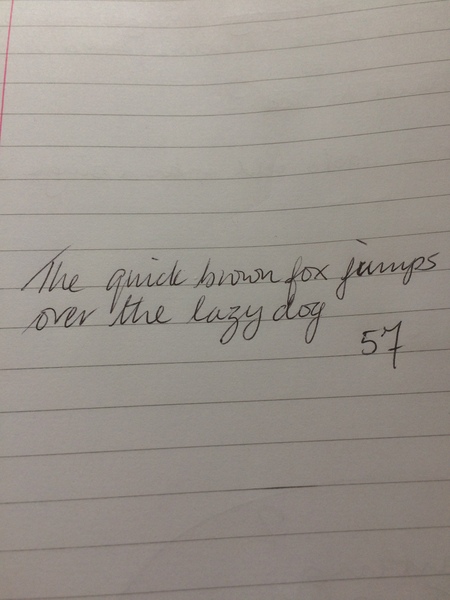 The quick brown fox jumps
over the lazy dog
57